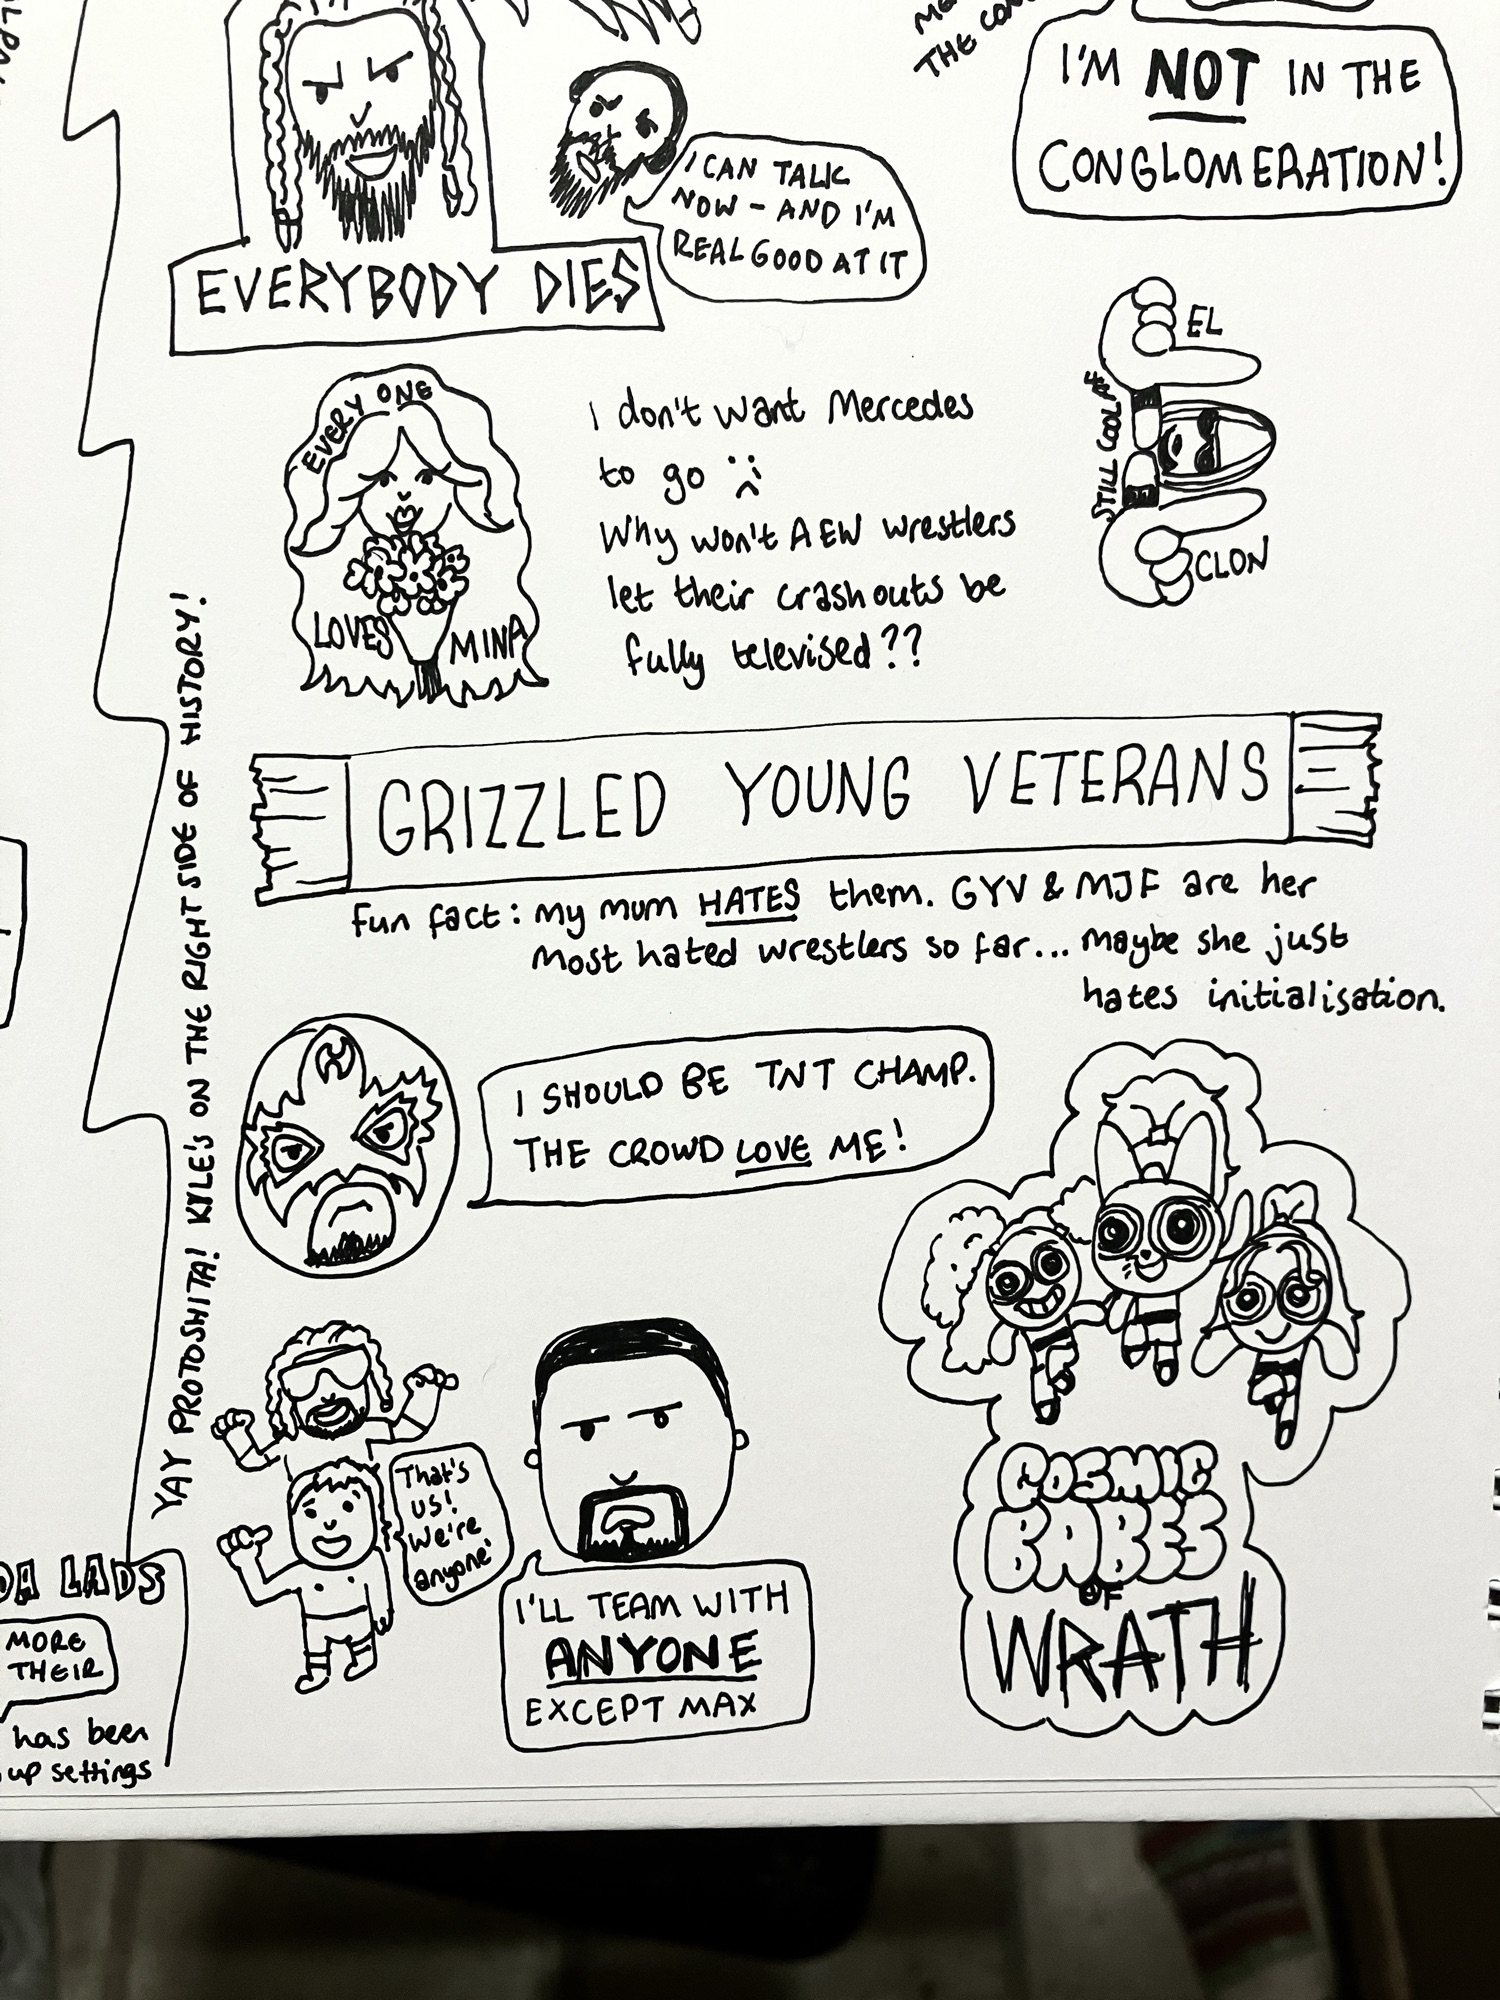 THE
I'M NOT IN THE
CONGLOMERATION!
I CAN TALK
NOW - AND I'M
REAL GOOD AT IT
EVERYBODY DIES
EL
STILL COOL AF
CLON
EVERY ONE
LOVES MINA
I don't want Mercedes
to go :(
Why won't AEW wrestlers
let their crashouts be
fully televised??
GRIZZLED YOUNG VETERANS
Fun fact: my mum HATES them. GYV & MJF are her
most hated wrestlers so far... maybe she just
hates initialisation.
YAY PROTOSHITA! KYLE'S ON THE RIGHT SIDE OF HISTORY!
I SHOULD BE TNT CHAMP.
THE CROWD LOVE ME!
That's
us!
We're
anyone'
I'LL TEAM WITH
ANYONE
EXCEPT MAX
COSMIC
BABES
OF
WRATH
LADS
MORE
THEIR
has been
up settings